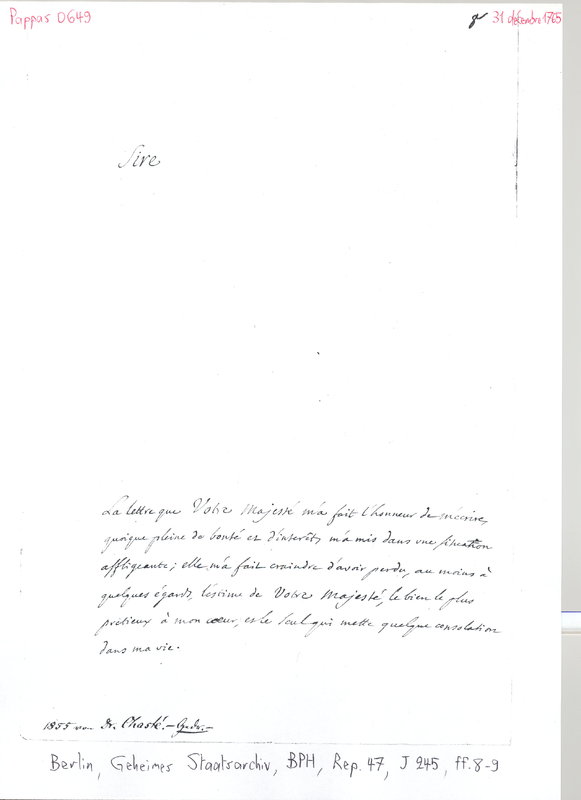 Pappas 0649
31 décembre 1765
Sire
La lettre que Votre Majesté m'a fait l'honneur de m'écrire,
quoique pleine de bonté et d'interêt, m'a mis dans une situation
affligeante; elle m'a fait craindre d'avoir perdu, au moins à
quelques égards, l'estime de Votre Majesté, le bien le plus
prétieux à mon cœur, et le seul qui mette quelque consolation
dans ma vie.
1855 von Dr. Chasté.-
Berlin, Geheimes Staatsarchiv, BPH, Rep. 47, J 245, ff. 8-9